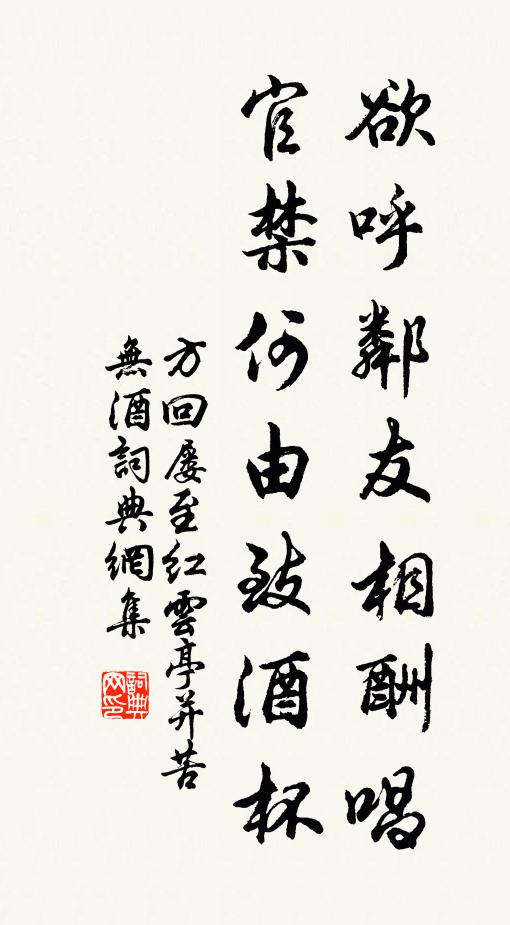 欲呼鄰友相酬唱
官禁何由致酒杯
方回屢至紅雲亭並苦
無酒詞典網集
詞典
网印